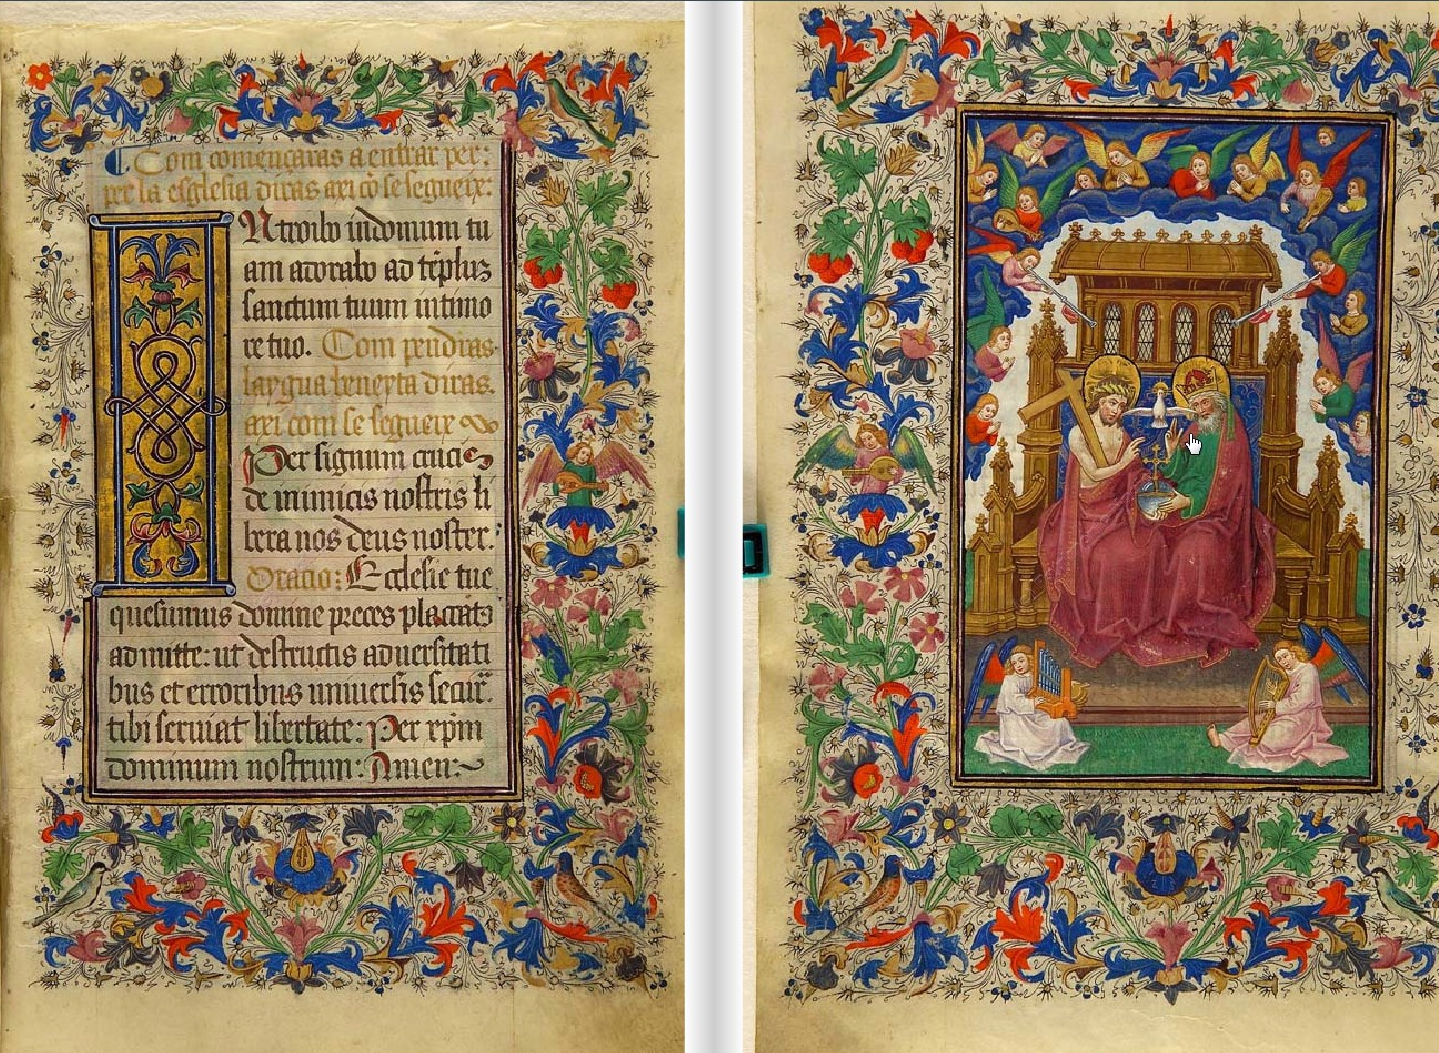 Com comengaras a entrar per:
per la esglesia diras axi cõ se segueix:
Introibo indomum tu
am adorabo ad tēpluȝ
sanctum tuum in timo
re tuo. Com pendras
laygua beneyta diras.
axi com se segueix
Per signum crucis
de inimicis nostris li
bera nos deus noster.
Oracio: Ecclesie tue
quesumus domine preces placatꝰ
admitte: ut destructis aduersitati
bus et erroribus uniuersis secur̄
tibi seruiat libertate: Per xp̄m
dominum nostrum: Amen: